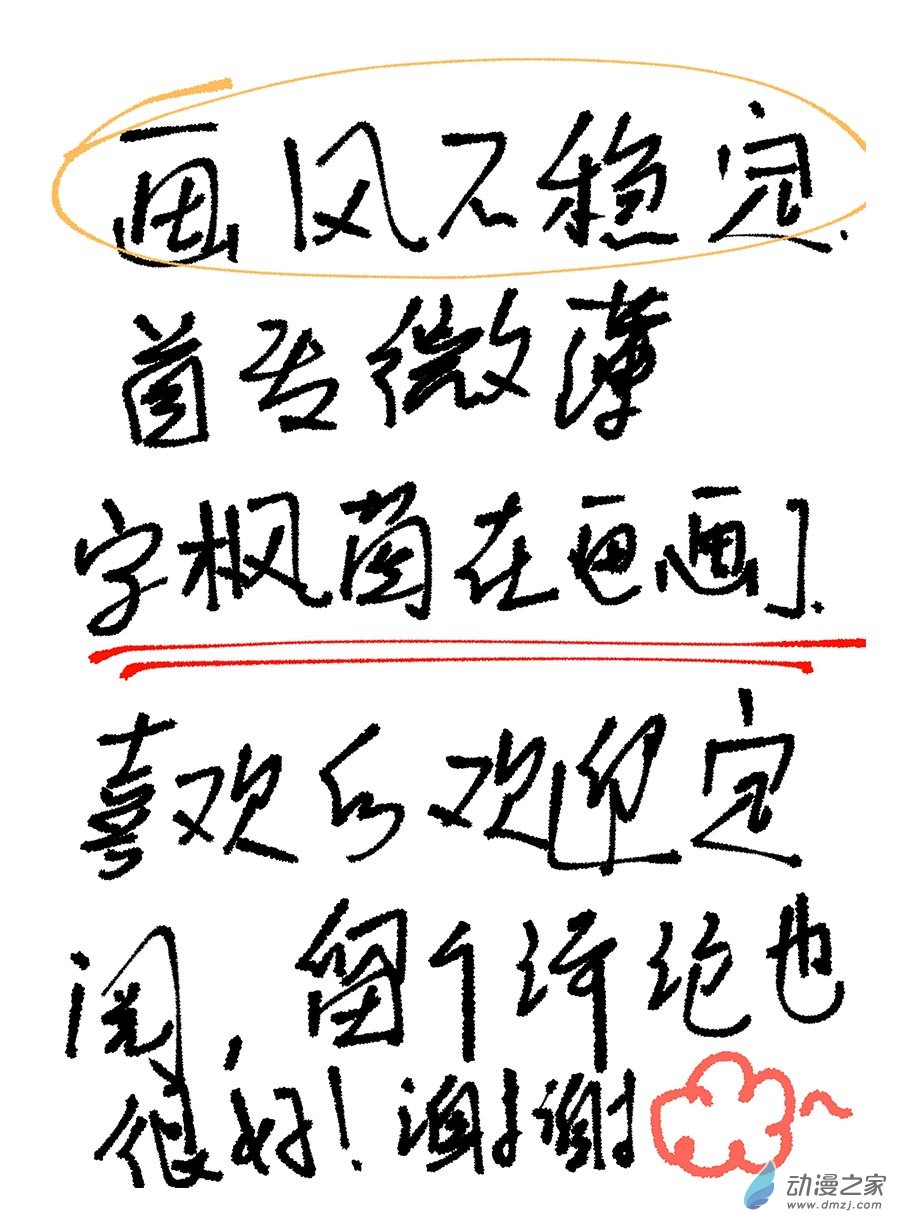 画风不稳定.
首发微薄
字枫菌在画画].
喜欢的欢迎定
阅,留个评论也
很好!谢谢
动漫之家
www.dmzj.com